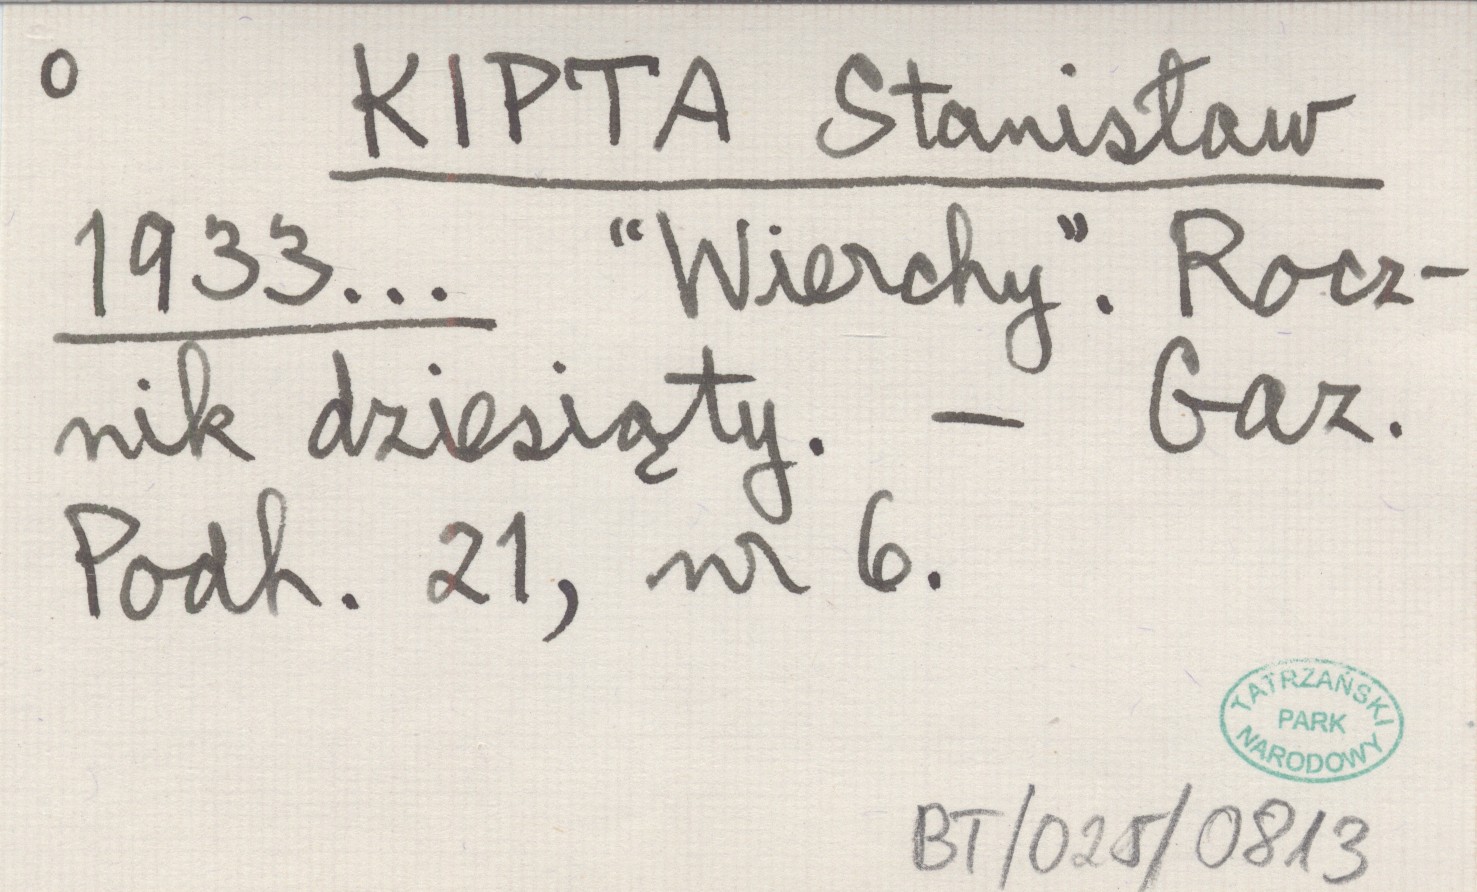 o KIPTA Stanisław
1933... "Wierchy". Rocz-
nik dziesiąty. – Gaz.
Podh. 21, nr 6.
TATRZAŃSKI
PARK
NARODOWY
BT/025/0813